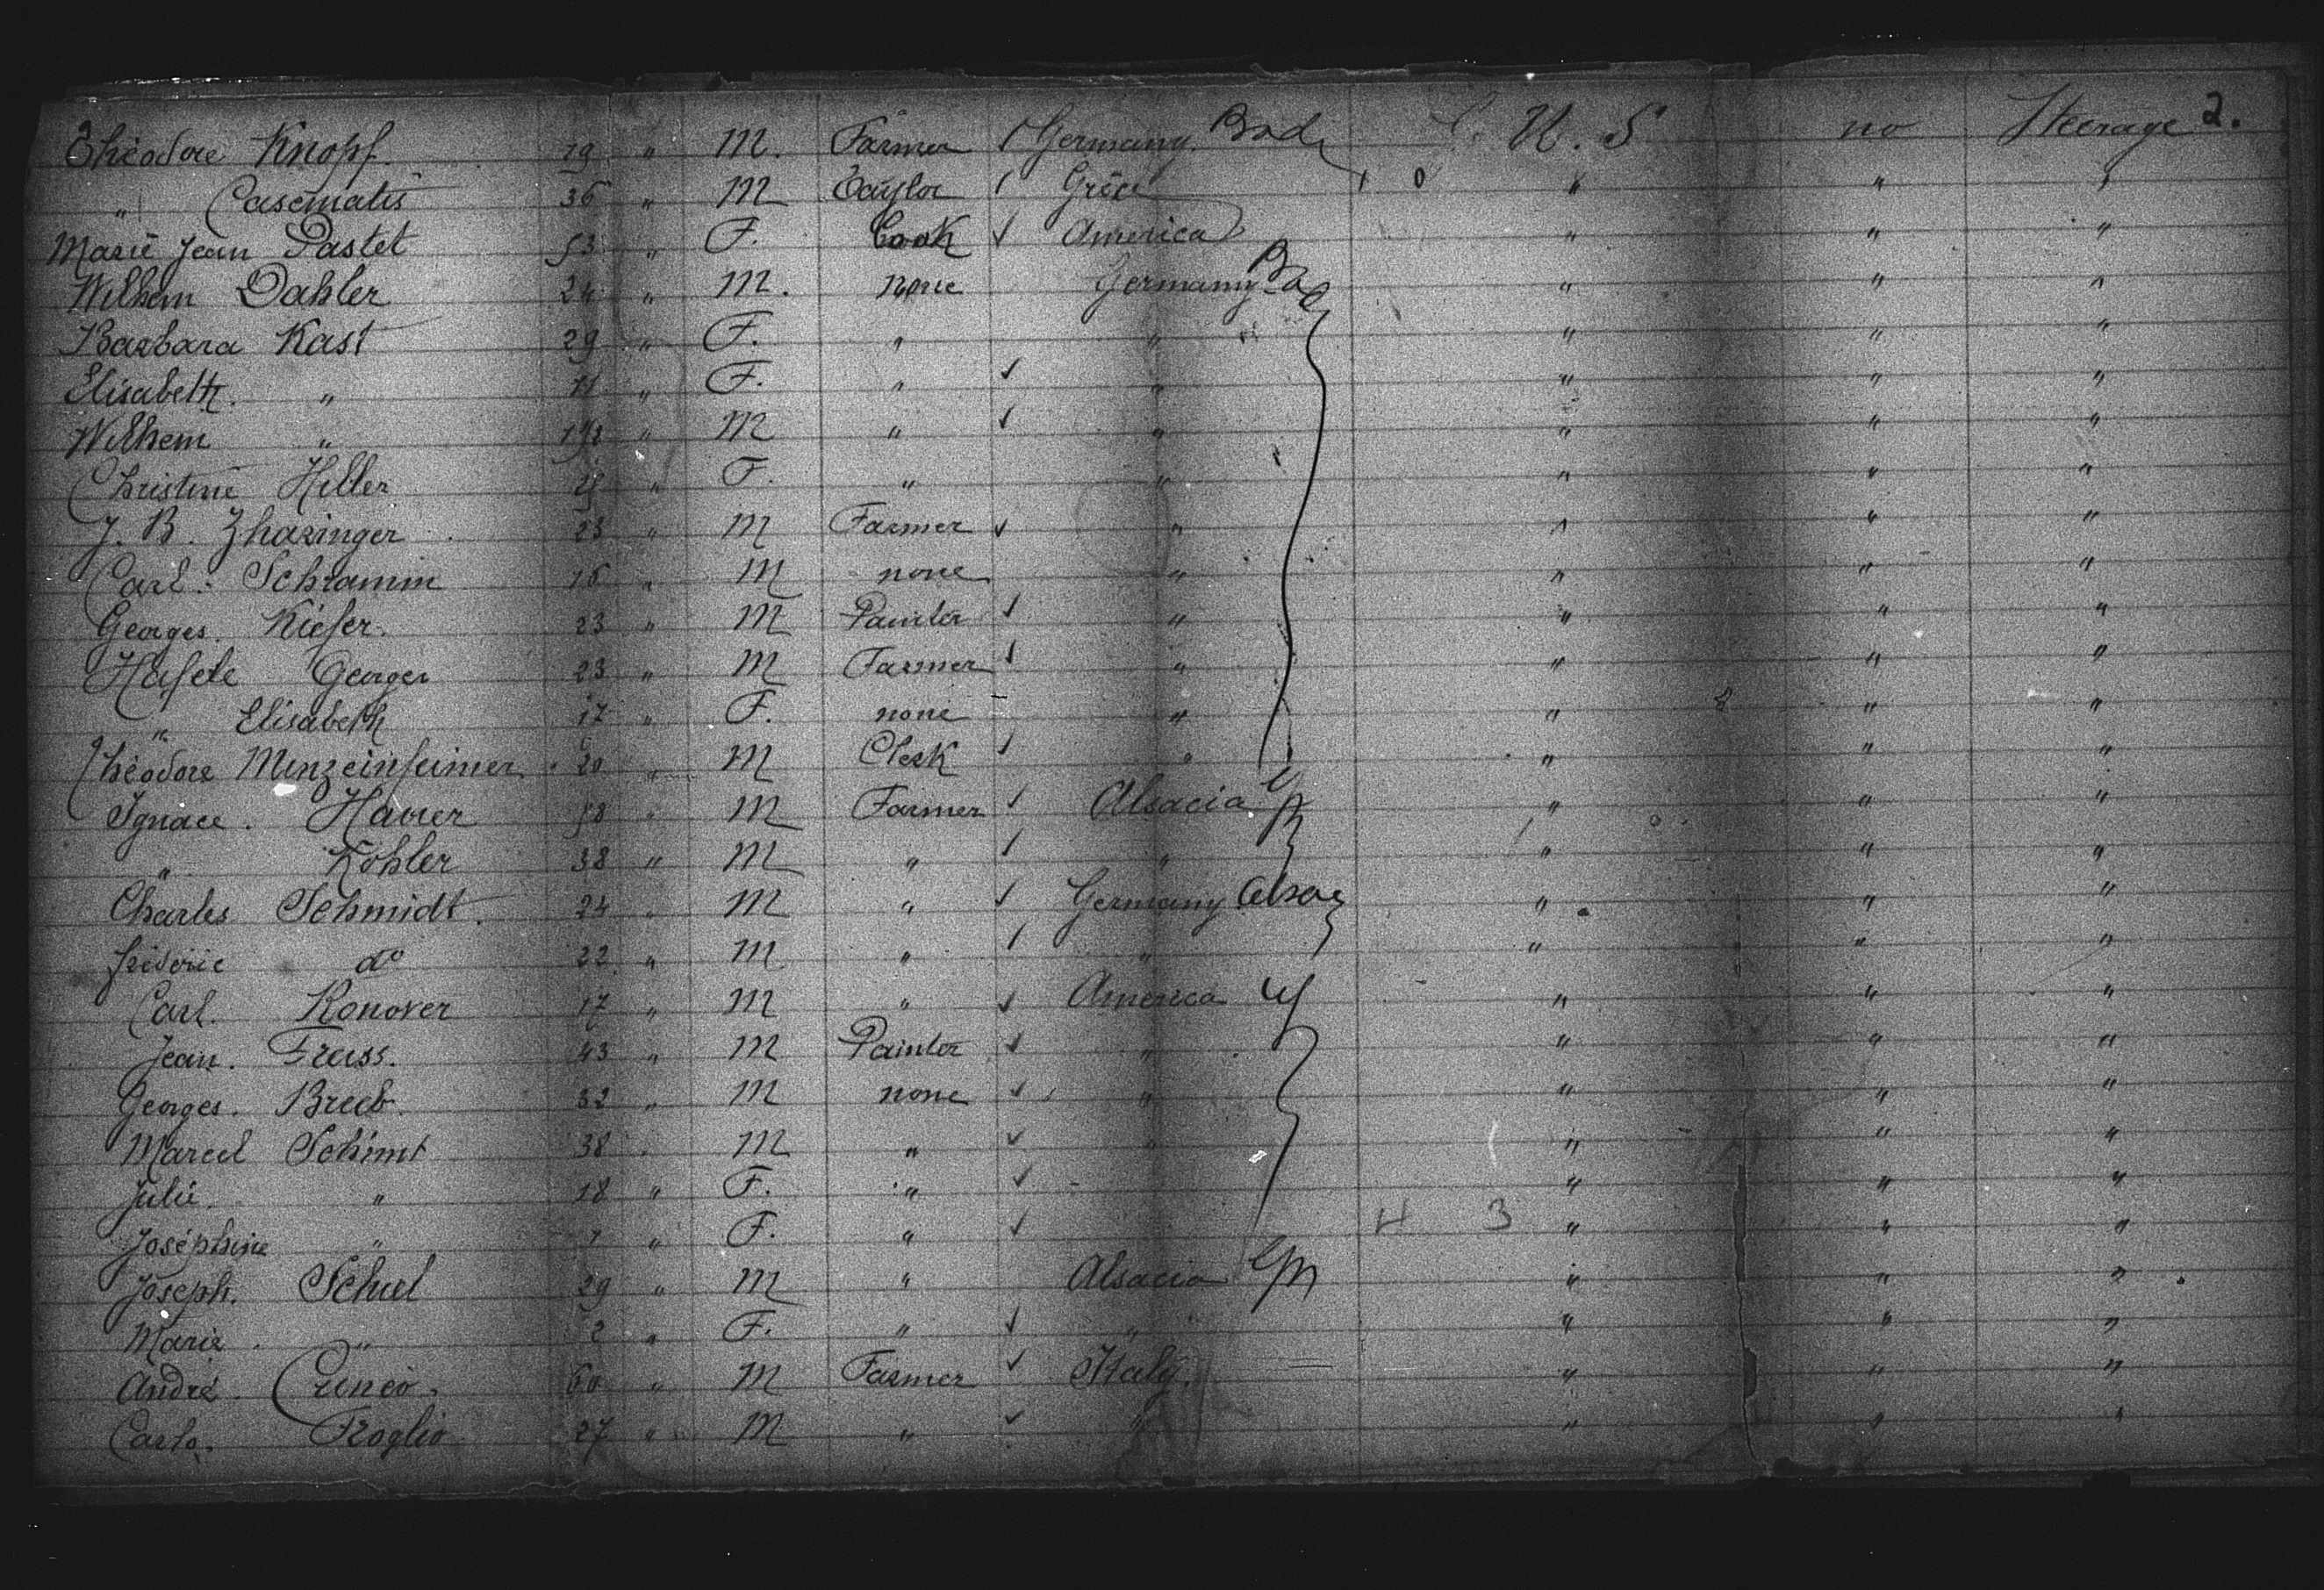 Théodore Knopf. 19 " M. Farmer Germany. Bade U. S no Steerage 2.
" Casematis 36 " M Taylor Grèce " " "
Marie Jean Pastet 53 " F. Cook America " " "
Wilhem Dahler 24 " M. none Germany Bade " " "
Barbara Kast 29 " F. " " " " "
Elisabeth. " 11 " F. " " " " "
Wilhem " " M " " " " "
Christine Hiller " F. " " " " "
J. B. Zhazinger 23 " M Farmer " " " "
Carl. Schramm 16 " M none " " " "
Georges. Kiefer. 23 " M Painter " " " "
Hafele Georges 23 " M Farmer " " " "
" Elisabeth 17 " F. none " " " "
Théodore Menzeinfeimer 20 " M Clerk " " " "
Ignace. Haurer 58 " M Farmer Alsacia " " "
" Kohler 38 " M " " " " "
Charles Schmidt. 24 " M " Germany Alsac " " "
Fréderic do 22 " M " " " " "
Carl. Konover 17 " M " America " " "
Jean. Freiss. 43 " M Painter " " " "
Georges. Breeb. 32 " M none " " " "
Marcel Schimt 38 " M " " " " "
Julie. " 18 " F. " " " "
Joséphine " 7 " F. " 4 3 " " "
Joseph. Schiel 29 " M " Alsacia " " "
Marie. " 2 " F. " " " " "
André. Cuneo. 60 " M Farmer Italy. " " "
Carlo. Troglio 27 " M " " " " "